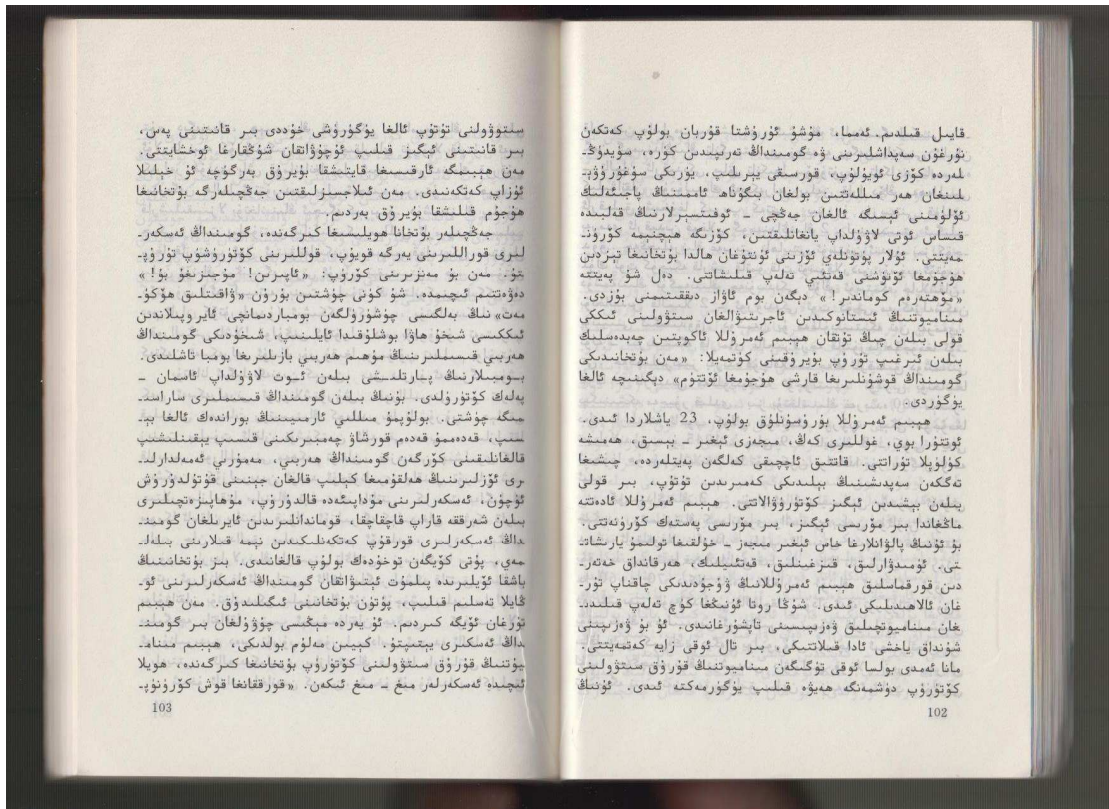 قايىل قىلدىم. ئەمما، مۇشۇ ئۇرۇشتا قۇربان بولۇپ كەتكەن
نۇرغۇن سەپداشلىرىنى ۋە گومىنداڭ تەرىپىدىن كۈرە، سۈيدۈڭ-
لەردە كۆزى ئويۇلۇپ، قورسىقى يېرىلىپ، يۈرىكى سۇغۇرۇۋې-
لىنغان ھەر مىللەتتىن بولغان بىگۇناھ ئاممىنىڭ پاجىئەلىك
ئۆلۈمىنى ئېسىگە ئالغان جەڭچى - ئوفىتسېرلارنىڭ قەلبىدە
قىساس ئوتى لاۋۇلداپ يانغانلىقتىن، كۆزىگە ھېچنېمە كۆرۈن-
مەيتتى. ئۇلار پۈتۈنلەي ئۆزىنى ئۇنتۇغان ھالدا بۇتخانىغا تېزدىن
ھۇجۇمغا ئۆتۈشنى قەتئىي تەلەپ قىلىشاتتى. دەل شۇ پەيتتە
«مۆھتەرەم كوماندىر!» دېگەن بوم ئاۋاز دىققىتىمنى بۇزدى.
مىناميوتنىڭ ئىستانوكىدىن ئاجرىتىۋالغان ستۋولىنى ئىككى
قولى بىلەن چىڭ تۇتقان ھېيىم ئەمرۇللا ئاكوپتىن چەبدەسلىك
بىلەن ئىرغىپ تۇرۇپ بۇيرۇقىنى كۈتمەيلا: «مەن بۇتخانىدىكى
گومىنداڭ قوشۇنلىرىغا قارشى ھۇجۇمغا ئۆتتۈم» دېگىنىچە ئالغا
يۈگۈردى.
ھېيىم ئەمرۇللا بۇرۇسۇنلۇق بولۇپ، 23 ياشلاردا ئىدى.
ئوتتۇرا بوي، غوللىرى كەڭ، مىجەزى ئېغىر - بېسىق، ھەمىشە
كۈلۈپلا تۇراتتى. قاتتىق ئاچچىقى كەلگەن پەيتلەردە، چىشىغا
تەگكەن سەپدىشىنىڭ بېلىدىكى كەمىرىدىن تۇتۇپ، بىر قولى
بىلەن بېشىدىن ئېگىز كۆتۈرۈۋالاتتى. ھېيىم ئەمرۇللا ئادەتتە
ماڭغاندا بىر مۆرىسى ئېگىز، بىر مۆرىسى پەستەك كۆرۈنەتتى.
بۇ ئۇنىڭ پالۋانلارغا خاس ئېغىر مىجەز - خۇلقىغا تولىمۇ يارىشات-
تى. ئۈمىدۋارلىق، قىزغىنلىق، قەتئىيلىك، ھەرقانداق خەتەر-
دىن قورقماسلىق ھېيىم ئەمرۇللانىڭ ۋۇجۇدىدىكى چاقناپ تۇر-
غان ئالاھىدىلىكى ئىدى. شۇڭا روتا ئۇنىڭغا كۈچ تەلەپ قىلىدى-
غان مىناميوتچىلىق ۋەزىپىسىنى تاپشۇرغانىدى. ئۇ بۇ ۋەزىپىنى
شۇنداق ياخشى ئادا قىلاتتىكى، بىر تال ئوقى زايە كەتمەيتتى.
مانا ئەمدى بولسا ئوقى تۈگىگەن مىناميوتنىڭ قۇرۇق ستۋولىنى
كۆتۈرۈپ دۈشمەنگە ھەيۋە قىلىپ يۈگۈرمەكتە ئىدى. ئۇنىڭ
102
ستۋولنى تۇتۇپ ئالغا يۈگۈرۈشى خۇددى بىر قانىتىنى پەس،
بىر قانىتىنى ئېگىز قىلىپ ئۇچۇۋاتقان شۇڭقارغا ئوخشايتتى.
مەن ھېيىمگە ئارقىسىغا قايتىشقا بۇيرۇق بەرگۈچە ئۇ خېلىلا
ئۇزاپ كەتكەنىدى. مەن ئىلاجسىزلىقتىن جەڭچىلەرگە بۇتخانىغا
ھۇجۇم قىلىشقا بۇيرۇق بەردىم.
جەڭچىلەر بۇتخانا ھويلىسىغا كىرگەندە، گومىنداڭ ئەسكەر-
لىرى قوراللىرىنى يەرگە قويۇپ، قوللىرىنى كۆتۈرۈشۈپ تۇرۇپ-
تۇ. مەن بۇ مەنزىرىنى كۆرۈپ: «ئاپىرىن! مۆجىزىغۇ بۇ!»
دەۋەتتىم ئىچىمدە. شۇ كۈنى چۈشتىن بۇرۇن «ۋاقىتلىق ھۆكۈ-
مەت»نىڭ بەلگىسى چۈشۈرۈلگەن بومباردىمانچى ئايروپىلاندىن
ئىككىسى شىخۇ ھاۋا بوشلۇقىدا ئايلىنىپ، شىخۇدىكى گومىنداڭ
ھەربىي قىسىملىرىنىڭ مۇھىم ھەربىي بازىلىرىغا بومبا تاشلىدى.
بومبىلارنىڭ پارتلىشى بىلەن ئوت لاۋۇلداپ ئاسمان -
پەلەك كۆتۈرۈلدى. بۇنىڭ بىلەن گومىنداڭ قىسىملىرى ساراسى-
مىگە چۈشتى. بولۇپمۇ مىللىي ئارمىيىنىڭ بوراندەك ئالغا بې-
سىپ، قەدەممۇ قەدەم قورشاۋ چەمبىرىكىنى قىسىپ يېقىنلىشىپ
قالغانلىقىنى كۆرگەن گومىنداڭ ھەربىي، مەمۇرىي ئەمەلدارلى-
رى ئۆزلىرىنىڭ ھەلقۇمىغا كېلىپ قالغان جېنىنى قۇتۇلدۇرۇش
ئۈچۈن، ئەسكەرلىرىنى مۇداپىئەدە قالدۇرۇپ، مۇھاپىزەتچىلىرى
بىلەن شەرققە قاراپ قاچقاچقا، قوماندانلىرىدىن ئايرىلغان گومىن-
داڭ ئەسكەرلىرى قورقۇپ كەتكەنلىكىدىن نېمە قىلارىنى بىلەل-
مەي، پۇتى كۆيگەن توخۇدەك بولۇپ قالغانىدى. بىز بۇتخانىنىڭ
باشقا ئۆيلىرىدە پىلمۇت ئېتىۋاتقان گومىنداڭ ئەسكەرلىرىنى ئو-
ڭايلا تەسلىم قىلىپ، پۈتۈن بۇتخانىنى ئىگىلىدۇق. مەن ھېيىم
تۇرغان ئۆيگە كىردىم. ئۇ يەردە مېڭىسى چۇۋۇلغان بىر گومىن-
داڭ ئەسكىرى يېتىپتۇ. كېيىن مەلۇم بولدىكى، ھېيىم مىنام-
يوتنىڭ قۇرۇق ستۋولىنى كۆتۈرۈپ بۇتخانىغا كىرگەندە، ھويلا
ئىچىدە ئەسكەرلەر مىغ - مىغ ئىكەن. «قورققانغا قوش كۆرۈنۈپ-
103